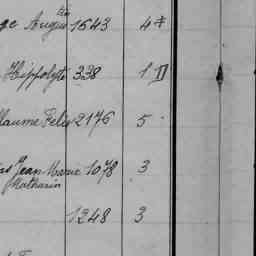 ge Augustin 1643 4 #
Hippolyte 338 1
llaume Felix 2176 5
as Jean Marie 1078 3
Mathurin
1248 3